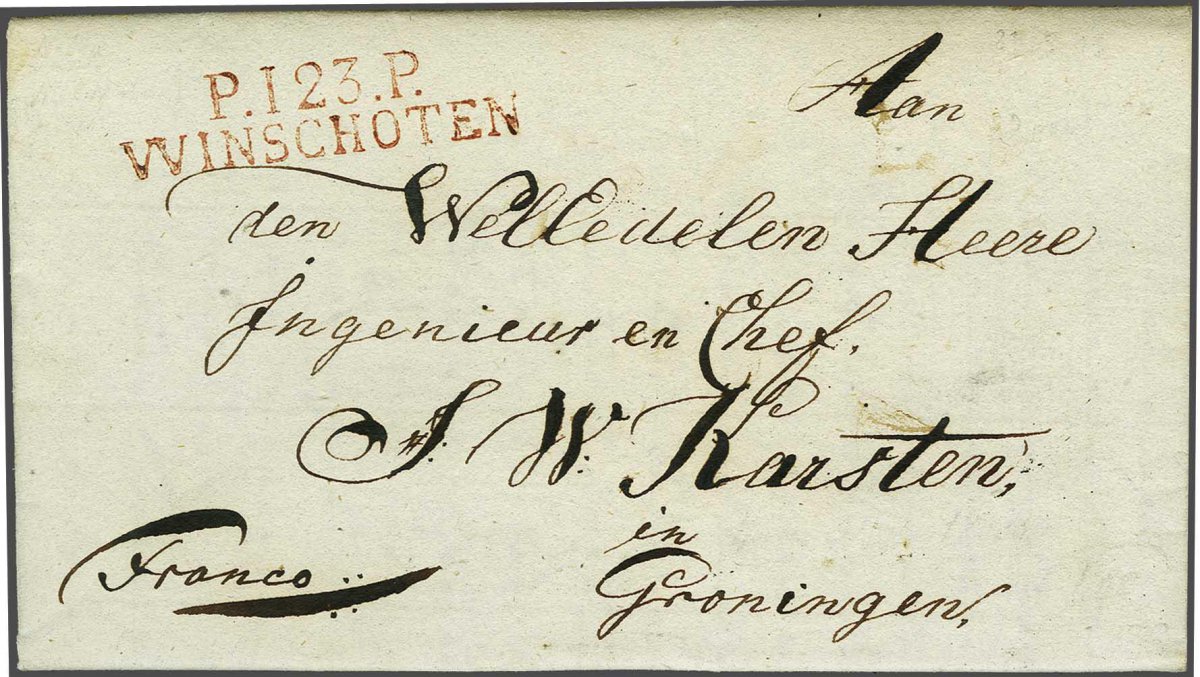 P.123.P.
WINSCHOTEN
Aan
den Welledelen Heere
Ingenieur en Chef.
J. W. Karsten,
in
Groningen,
Franco